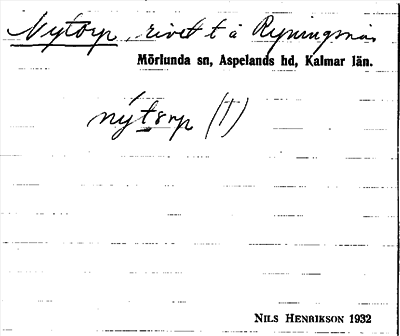 Nytorp, rivet t å Ryningsnäs
Mörlunda sn, Aspelands hd, Kalmar län.
nýtørp (T)
NILS HENRIKSON 1932